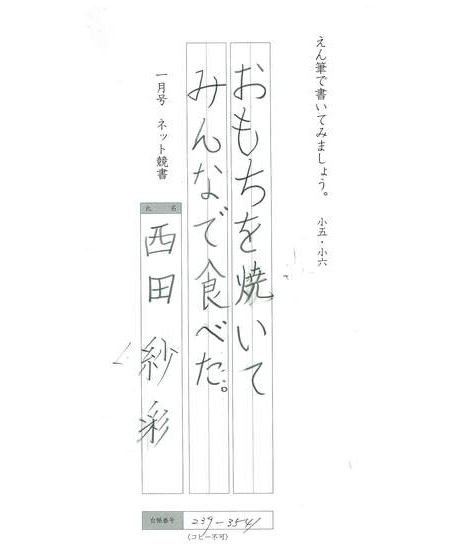 えん筆で書いてみましょう。 小五・小六
おもちを焼いて
みんなで食べた。
一月号 ネット競書
氏名
西田 紗彩
台帳番号 239-3541
(コピー不可)